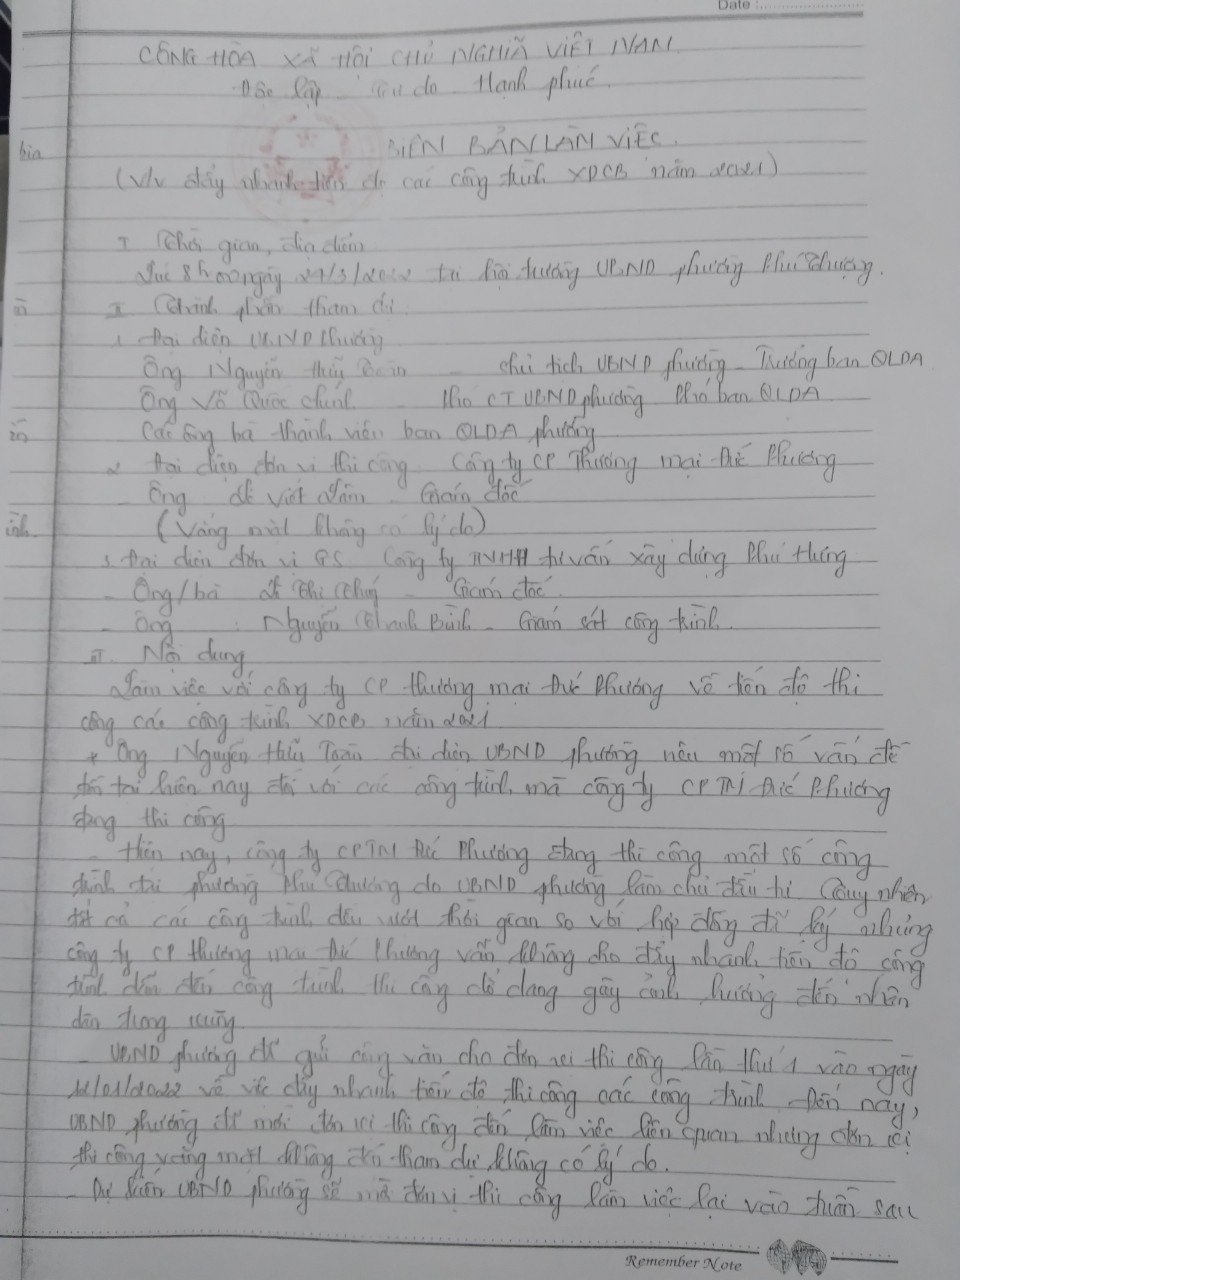 Date :
CÔNG HÒA XÃ HÔI CHỦ NGHIÃ VIÊT NAM
Độc lập Tự do Hạnh phúc.
BIÊN BẢN LÀM VIỆC.
bia
(V/v đẩy nhanh tiến độ các công trình XDCB năm 2021)
I Thời gian, địa điểm
Lúc 8h00 ngày 24/3/2022 tại hội trường UBND phường Phú Thượng.
II Thành phần tham dự
1. Đại diện UBND Phường
Ông Nguyễn Hữu Toàn - chủ tịch UBND phường - Trưởng ban QLDA
Ông Võ Quốc Chính - Phó CT UBND phường Phó ban QLDA
Các ông bà thành viên ban QLDA phường
2 Đại diện đơn vị thi công Công ty CP Thương mại Đức Phương
- Ông Lê Viết Lâm - Giám đốc
(Vắng mặt không có lý do)
3. Đại diện đơn vị GS Công ty TNHH tư vấn xây dựng Phú Hưng
- Ông/bà Thi - Giám đốc
- Ông : Nguyễn Thanh Bình - Giám sát công trình.
III. Nội dung
Làm việc với công ty CP thương mại Đức Phương về tiến độ thi
công các công trình XDCB năm 2021
+ Ông Nguyễn Hữu Toàn đại diện UBND phường nêu một số vấn đề
tồn tại hiện nay đối với các công trình mà công ty CP TM Đức Phương
đang thi công
- Hiện nay, công ty CPTM Đức Phương đang thi công một số công
trình tại phường Phú Thượng do UBND phường làm chủ đầu tư Tuy nhiên
tất cả các công trình đều vượt thời gian so với hợp đồng đã ký nhưng
công ty CP thương mại Đức Phương vẫn không cho đẩy nhanh tiến độ công
trình dẫn đến công trình thi công dở dang gây ảnh hưởng đến nhân
dân trong vùng
- UBND phường đã gửi công văn cho đơn vị thi công lần thứ 1 vào ngày
12/01/2022 về việc đẩy nhanh tiến độ thi công các công trình Đến nay,
UBND phường đã mời đơn vị thi công đến làm việc liên quan nhưng đơn vị
thi công vắng mặt không đến tham dự không có lý do.
- Dự kiến UBND phường sẽ mời đơn vị thi công làm việc lại vào tuần sau
Remember Note